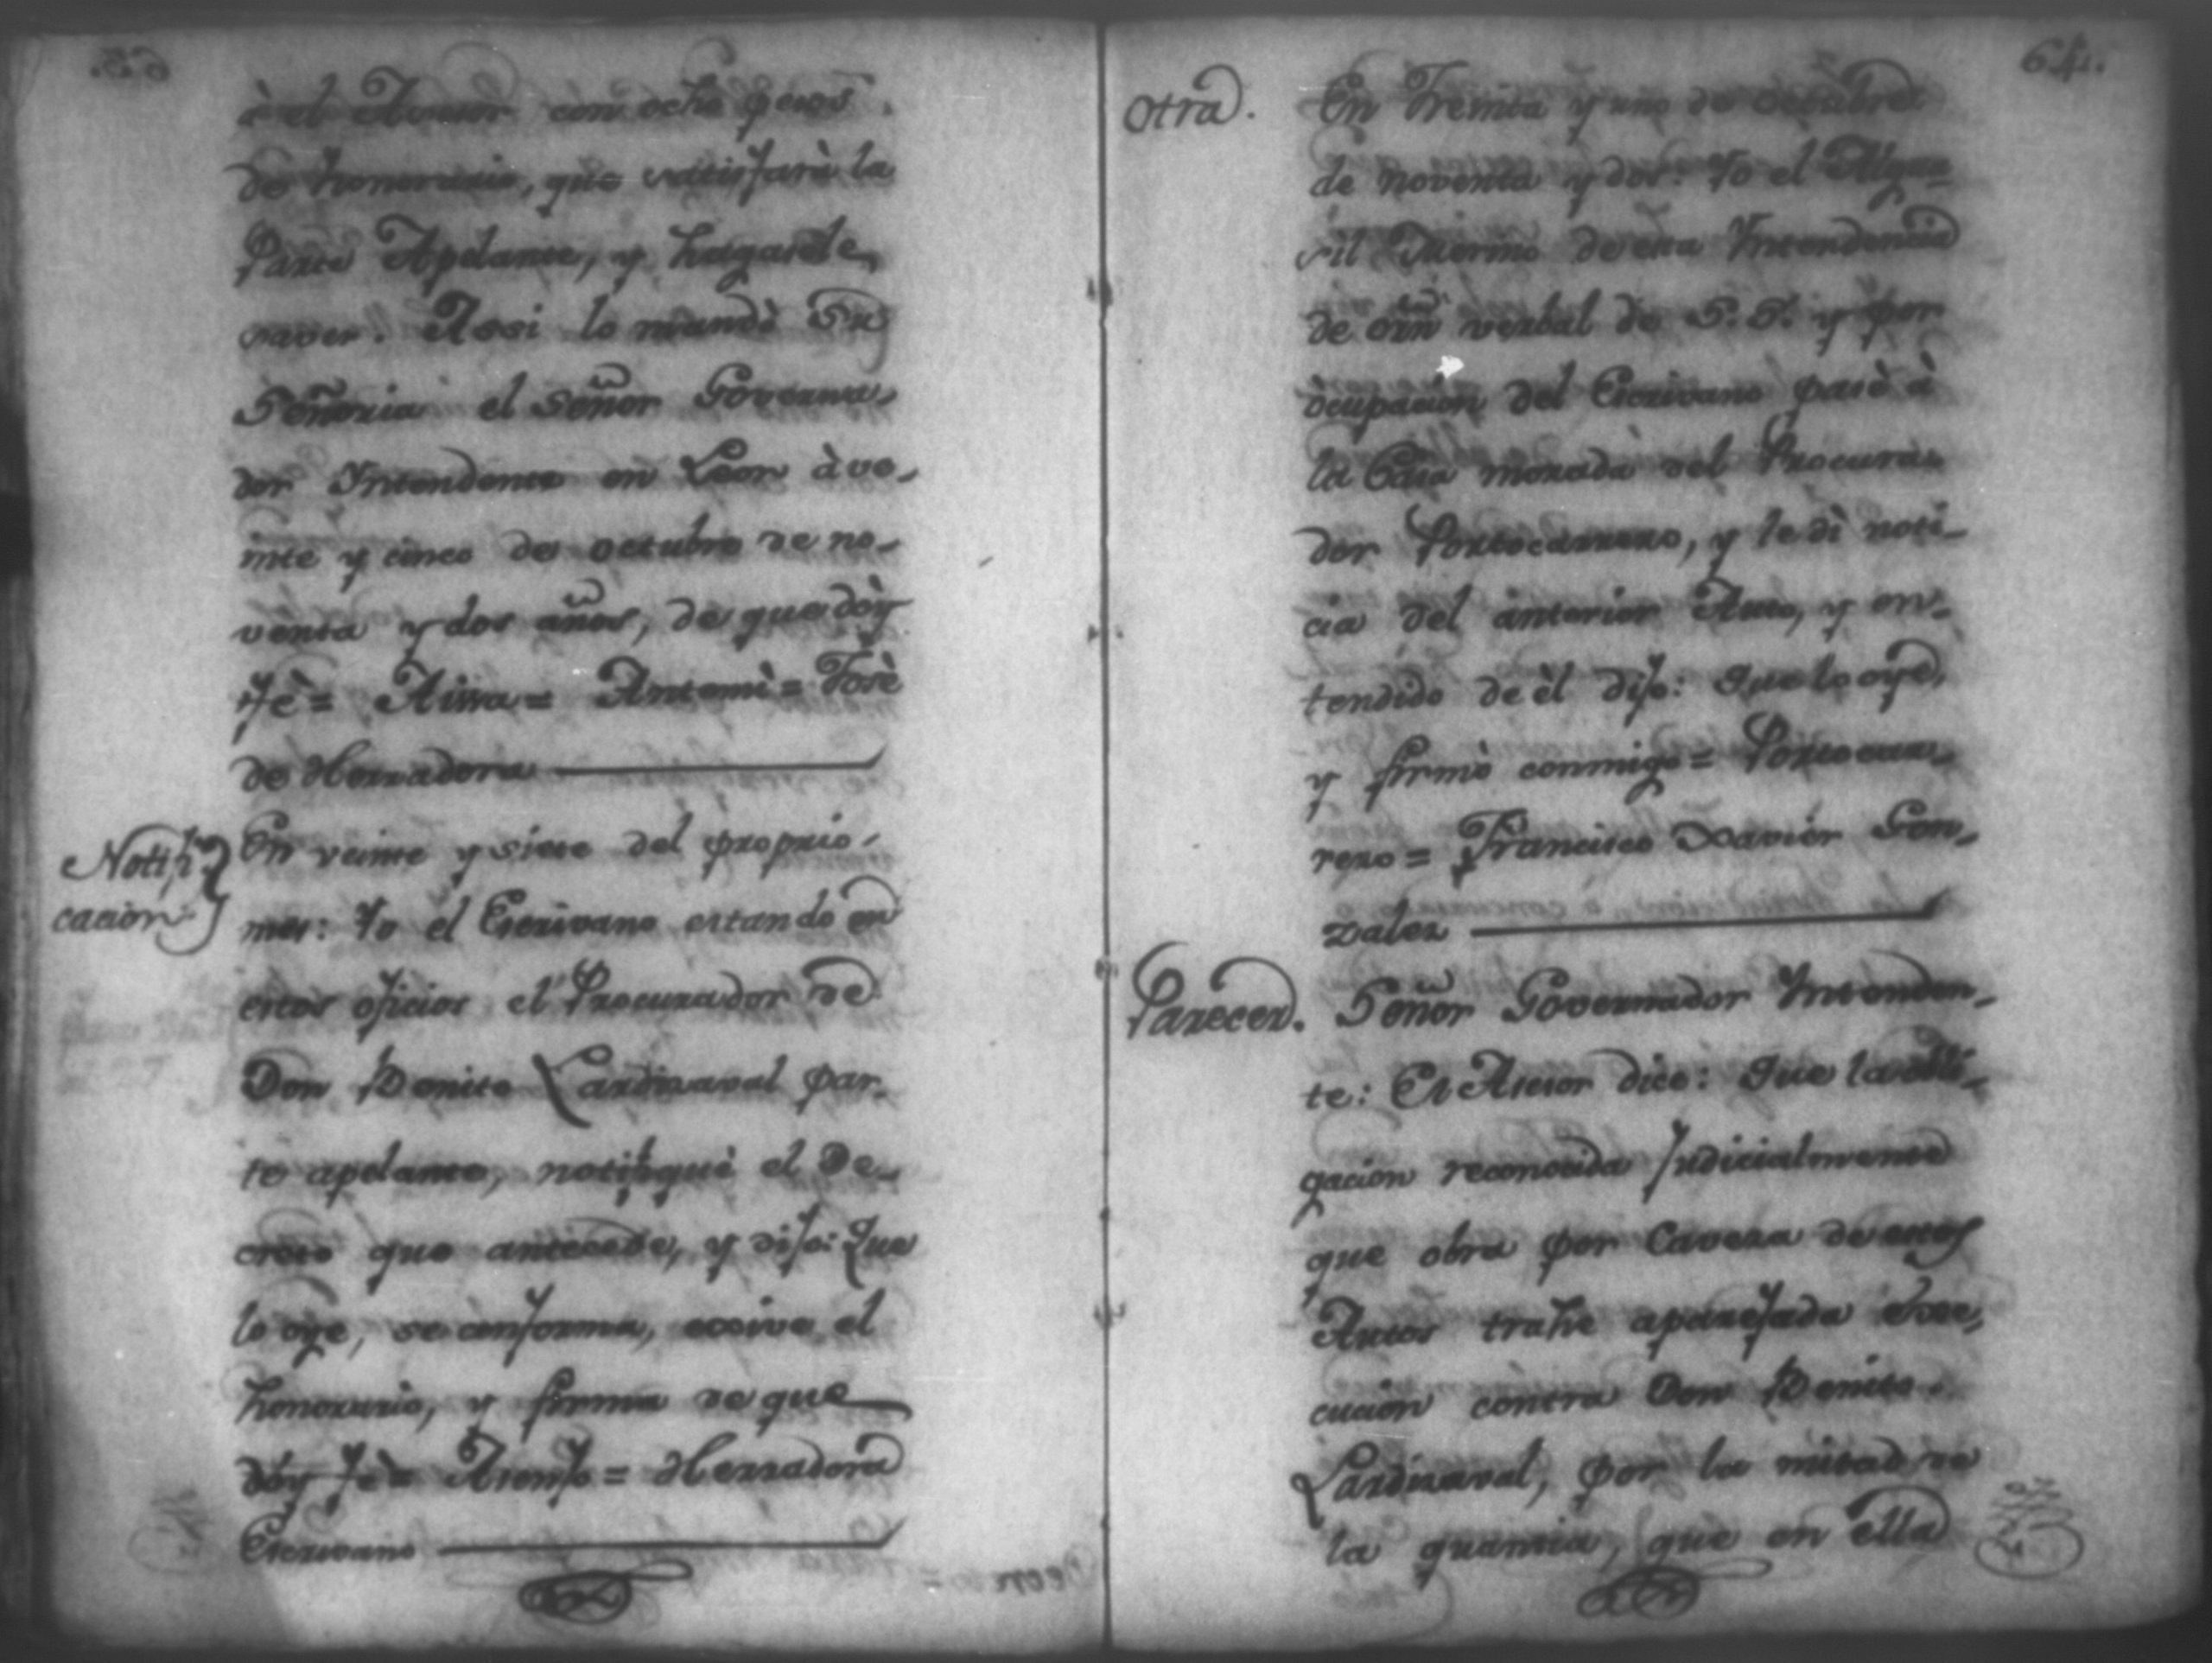 à el Asesor con ocho pesos
de honorario, que satisfará la
Parte Apelante, y hagasele
saver. Assi lo mandò Su
Señoria el señor Governa-
dor Yntendente en Leon à ve-
inte y cinco de octubre de no-
venta y dos años, de que dòy
fè = Aissa = Antemi = Josè
de Herradora
Notifi-
cacion
En veinte y siete del proprio
mes: Yo el Escrivano estando en
estos oficios el Procurador de
Don Benito Lardizaval par-
te apelante, notifiquè el De-
creto que antecede, y dijo: Que
lo oye, se conforma, exsive el
honorario, y firma de que
dòy fè = Asensio = Herradora
Escrivano
64.
Otra.
En Treinta y uno de octubre
de noventa y dos: Yo el Algua-
sil Maymo de esta Yntendencia
de orñ verbal de S. S. y por
òcupacion del Escrivano pasè à
la Casa morada del Procura-
dor Portocarrero, y le dì noti-
cia del anterior Auto, y en-
tendido de èl dijo: Que lo oye,
y firmò conmigo = Portocar-
rero = Francisco Xavier Gon-
zalez
Parecer.
Señor Governador Yntenden-
te: El Asesor dice: Que la obli-
gacion reconocida Judicialmente
que obra por Caveza de estos
Autos trahe aparejada Exe-
cucion contra Don Benito
Lardizaval, por la mitad de
la quantia, que en ella